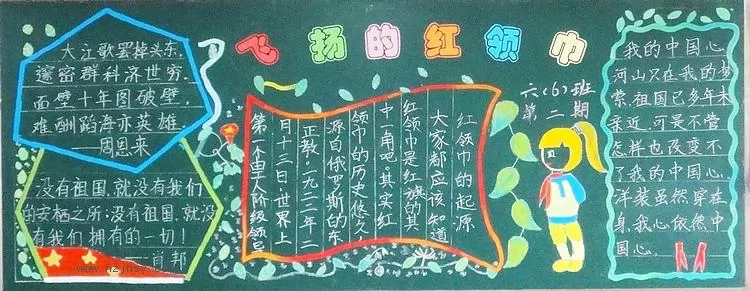 飞扬的红领巾
六(6)班
第二期
大江歌罢掉头东,
邃密群科济世穷.
面壁十年图破壁,
难酬蹈海亦英雄.
——周恩来
没有祖国,就没有我们
的安栖之所;没有祖国,就没
有我们拥有的一切!
——肖邦
红领巾的起源
大家都应该知道
红领巾是红旗的其
中一角吧。其实红
领巾的历史悠久,
源自俄罗斯的东
正教。一九二二年二
月十三日,世界上
第一个由工人阶级领导
我的中国心
河山只在我的梦
萦,祖国已多年未
亲近,可是不管
怎样也改变不
了我的中国心.
洋装虽然穿在
身,我心依然中
国心.